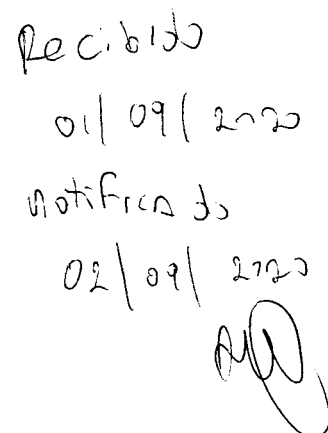 Recibido
01/09/2020
notificado
02/09/2020